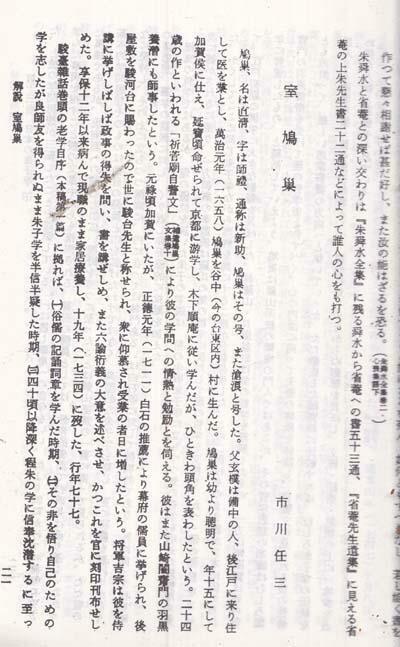 作つて懸々相謝せば甚だ好し、また汝の能はざるを恐る。
朱舜水と省菴との深い交わりは『朱舜水全集』に残る舜水から省菴への書五十三通、『省菴先生遺集』に見える省
菴の上朱先生書二十二通などによって誰人の心をも打つ。
室鳩巣
市川任三
鳩巣、名は直清、字は師禮、通称は新助、鳩巣はその号、また滄浪と号した。父玄樸は備中の人、後江戸に来り住
して医を業とし、萬治元年(一六五八)鳩巣を谷中(今の台東区内)村に生んだ。鳩巣は幼より聰明で、年十五にして
加賀侯に仕え、延寳頃命ぜられて京都に游学し、木下順庵に従い学んだが、ひときわ頭角を表わしたという。二十四
歳の作といわれる「祈菅廟自警文」(補遺鳩巣文集巻十)により彼の学問への情熱と勉励とを伺える。彼はまた山崎闇齋門の羽黒
養潛にも師事したという。元禄頃加賀にいたが、正徳元年(一七一一)白石の推薦により幕府の儒員に挙げられ、後
屋敷を駿河台に賜わったので世に駿台先生と称せられ、衆に仰慕され受業の者日に増したという。将軍吉宗は彼を侍
講に挙げしばしば政事の得失を問い、書を講ぜしめ、また六諭衍義の大意を述べさせ、かつこれを官に刻印刊布せし
めた。享保十二年以来病んで現職のまま家居療養し、十九年(一七三四)に歿した、行年七十七。
駿臺雑話巻頭の老学自序(本稿第一篇)に拠れば、㈠俗儒の記誦詞章を学んだ時期、㈡その非を悟り自己のための
学を志したが良師友を得られぬまま朱子学を半信半疑した時期、㈢四十頃以降深く程朱の学に信奉沈潛するに至っ
解説 室鳩巣
二一